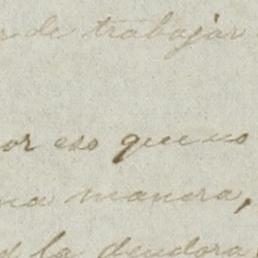 de trabajar
or eso que no
na manera,
la deudora